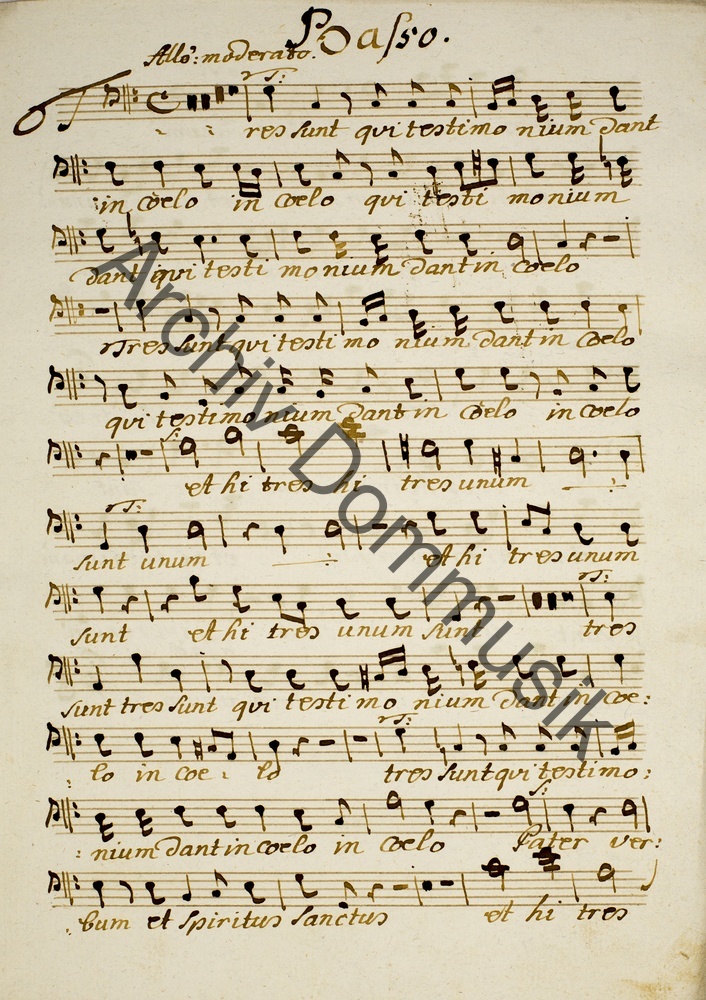 Basso.
Allo: moderato.
T:
res sunt qui testimo nium dant
in coelo in coelo qui testi monium
dant qui testi monium dant in coelo
Tres sunt qui testi mo nium dant in coelo
qui testimonium dant in coelo in coelo
S:
et hi tres hi tres unum
T:
sunt unum et hi tres unum
T:
sunt et hi tres unum sunt tres
sunt tres sunt qui testi mo nium dant in coe:
T:
: lo in coe : lo tres sunt qui testimo:
S:
: nium dant in coelo in coelo Pater ver:
: bum et spiritus sanctus et hi tres
Archiv Dommusik